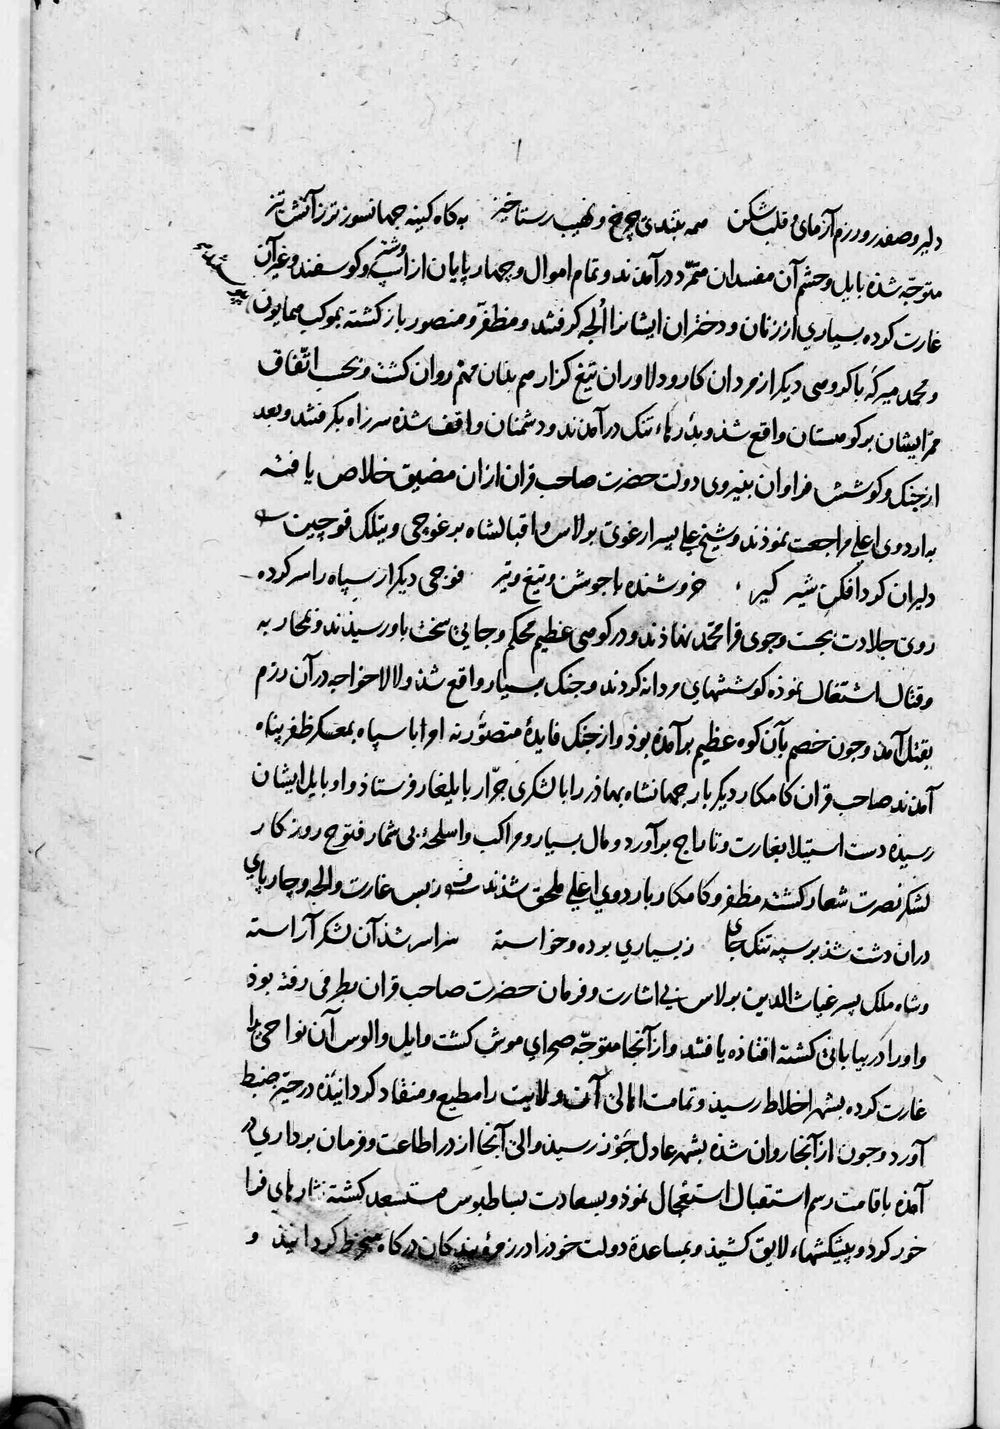 دلیر و صفدر و رزم آزمای و قلب شکن همه بتندی چرخ و نهیب رستاخیز به کاه کینه جهانسوزتر ز آتش تیز
متوجّه شده بایل و حشم آن مفسدان متمرّد درآمدند و تمام اموال و چهارپایان از اسب و شتر و کوسفند و غیر آن
غارت کرده بسیاری از زنان و دختران ایشانرا الجه کرفتند و مظفّر و منصور بازکشته بموکب همایون
و محمد میرکه با کروهی دیکر از مردان کار و دلاوران تیغ کزار هم بدان مهم روان کشت و بحسب اتّفاق
ممرّ ایشان بر کوهستان واقع شد و بدرّهاء تنک درآمدند و دشمنان واقف شده سر راه بکرفتند و بعد
از جنک و کوشش فراوان بنیروی دولت حضرت صاحب قران ازان مضیق خلاص یافته
به اردوی اعلی مراجعت نمودند و شیخ علی پسر ارغون برلاس و اقبالشاه برغوجی و یتلک قوجین
دلیران کرد افکن شیر کیر خروشنده با جوشن و تیغ و تیر فوجی دیکر از سپاه را سر کرده
روی جلادت بجست و جوی قرا محمّد نهادند و در کوهی عظیم محکم و جایی سخت باو رسیدند و بمحاربه
و قتال اشتغال نموده کوششهای مردانه کردند و جنک بسیار واقع شد و لالا خواجه در آن رزم
بقتل آمد و جون خصم بآن کوه عظیم برآمده بود و از جنک فایدهٔ متصوّر نه امرا با سپاه بمعسکر ظفر پناه
آمدند صاحب قران کامکار دیکر بار جهانشاه بهادر را با لشکری جرّار بایلغار فرستاد و او بایل ایشان
رسیده دست استیلا بغارت و تاراج برآورد و مال بسیار و مراکب و اسلحهٔ بی شمار فتوح روزکار
لشکر نصرت شعار کشته مظفر و کامکار باردوی اعلی ملحق شدند ز بس غارت و الجه و چارپای
دران دشت شد بر سپه تنک جای ز بسیاری بوده و خواسته سراسر شد آن لشکر آراسته
و شاه ملک پسر غیاث الدین برلاس بی اشارت و فرمان حضرت صاحب قران بطرفی رفته بود
و او را در بیابانی کشته افتاده یافتند و از آنجا متوجّه صحرای موش کشت و ایل و الوس آن نواحی را
غارت کرده بشهر اخلاط رسید و تمامت اهالی آن ولایت را مطیع و منقاد کردانیده در حیّز ضبط
آورد و جون از آنجا روان شده بشهر عادل جوز رسید والی آنجا از در اطاعت و فرمان برداری در
آمده باقامت رسم استقبال استعجال نمود و بسعادت بساطبوس مستسعد کشته نثارهای فرا
خور کرد و پیشکشهاء لایق کشید و بمساعدة دولت خود را در زمرهٔ بندکان درکاه منخرط کردانید و